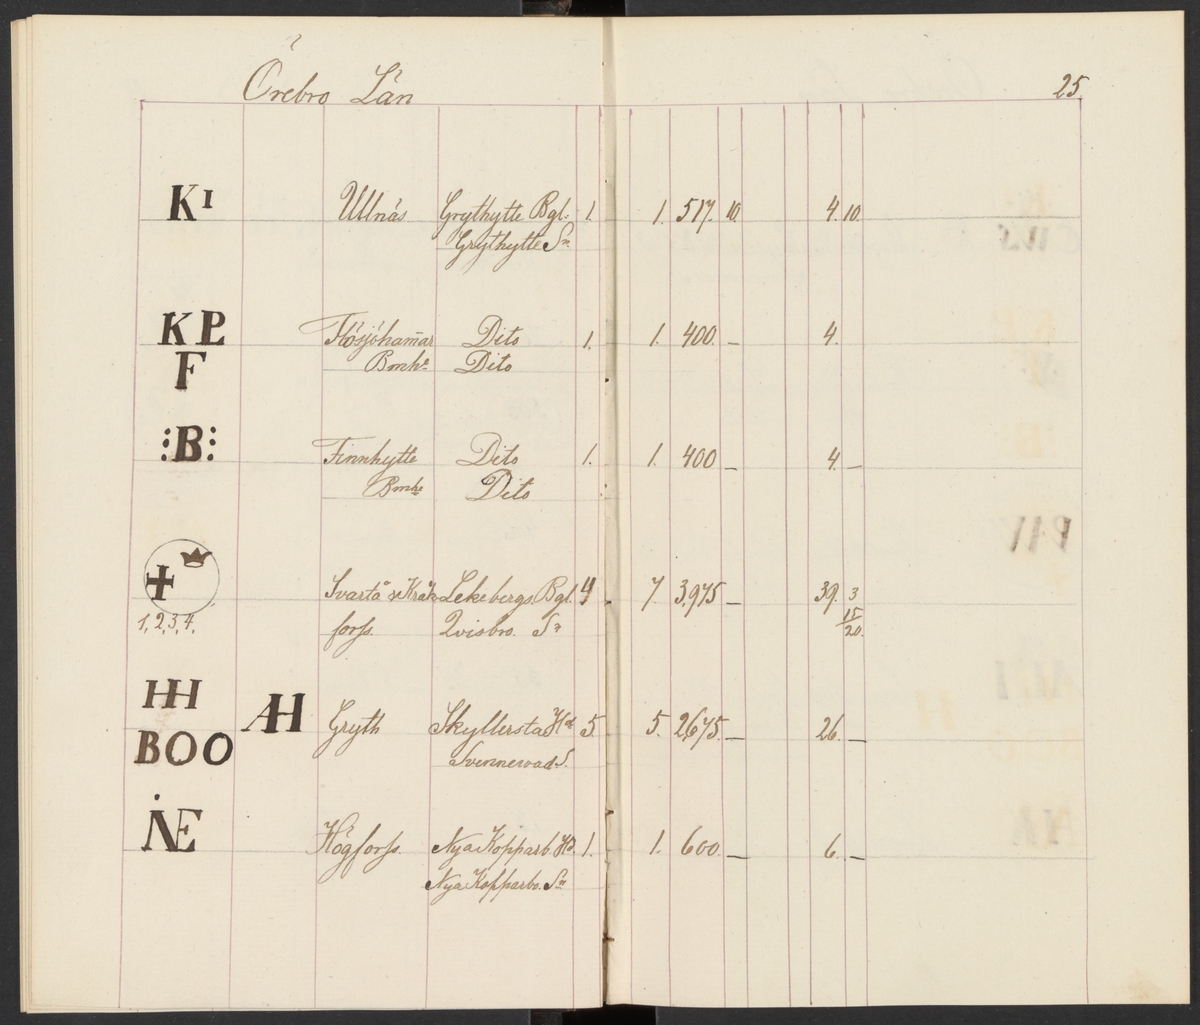 Örebro Län
25
K I Ullnäs Grythytte Bgl. 1. 1. 517. 10. 4. 10.
Grythytte Sn
K PL Flösjöhamar Dito 1. 1. 400. — 4.
F Bruk Dito
:B: Finnhytte Dito 1. 1. 400 — 4. —
Bruk Dito
Svartå & Kråk Lekebergs Bgl. 4 7. 3,975 — 39. 3
1, 2, 3, 4, forss. Qvisbro. Sn 15/20.
HH
AH Gryth Skyllersta Hd 5. 5. 2,675. — 26. —
BOO Svennevad S.
NE Högforss. Nya Kopparb. Hd. 1. 1. 600. — 6. —
Nya Kopparbs. Sn